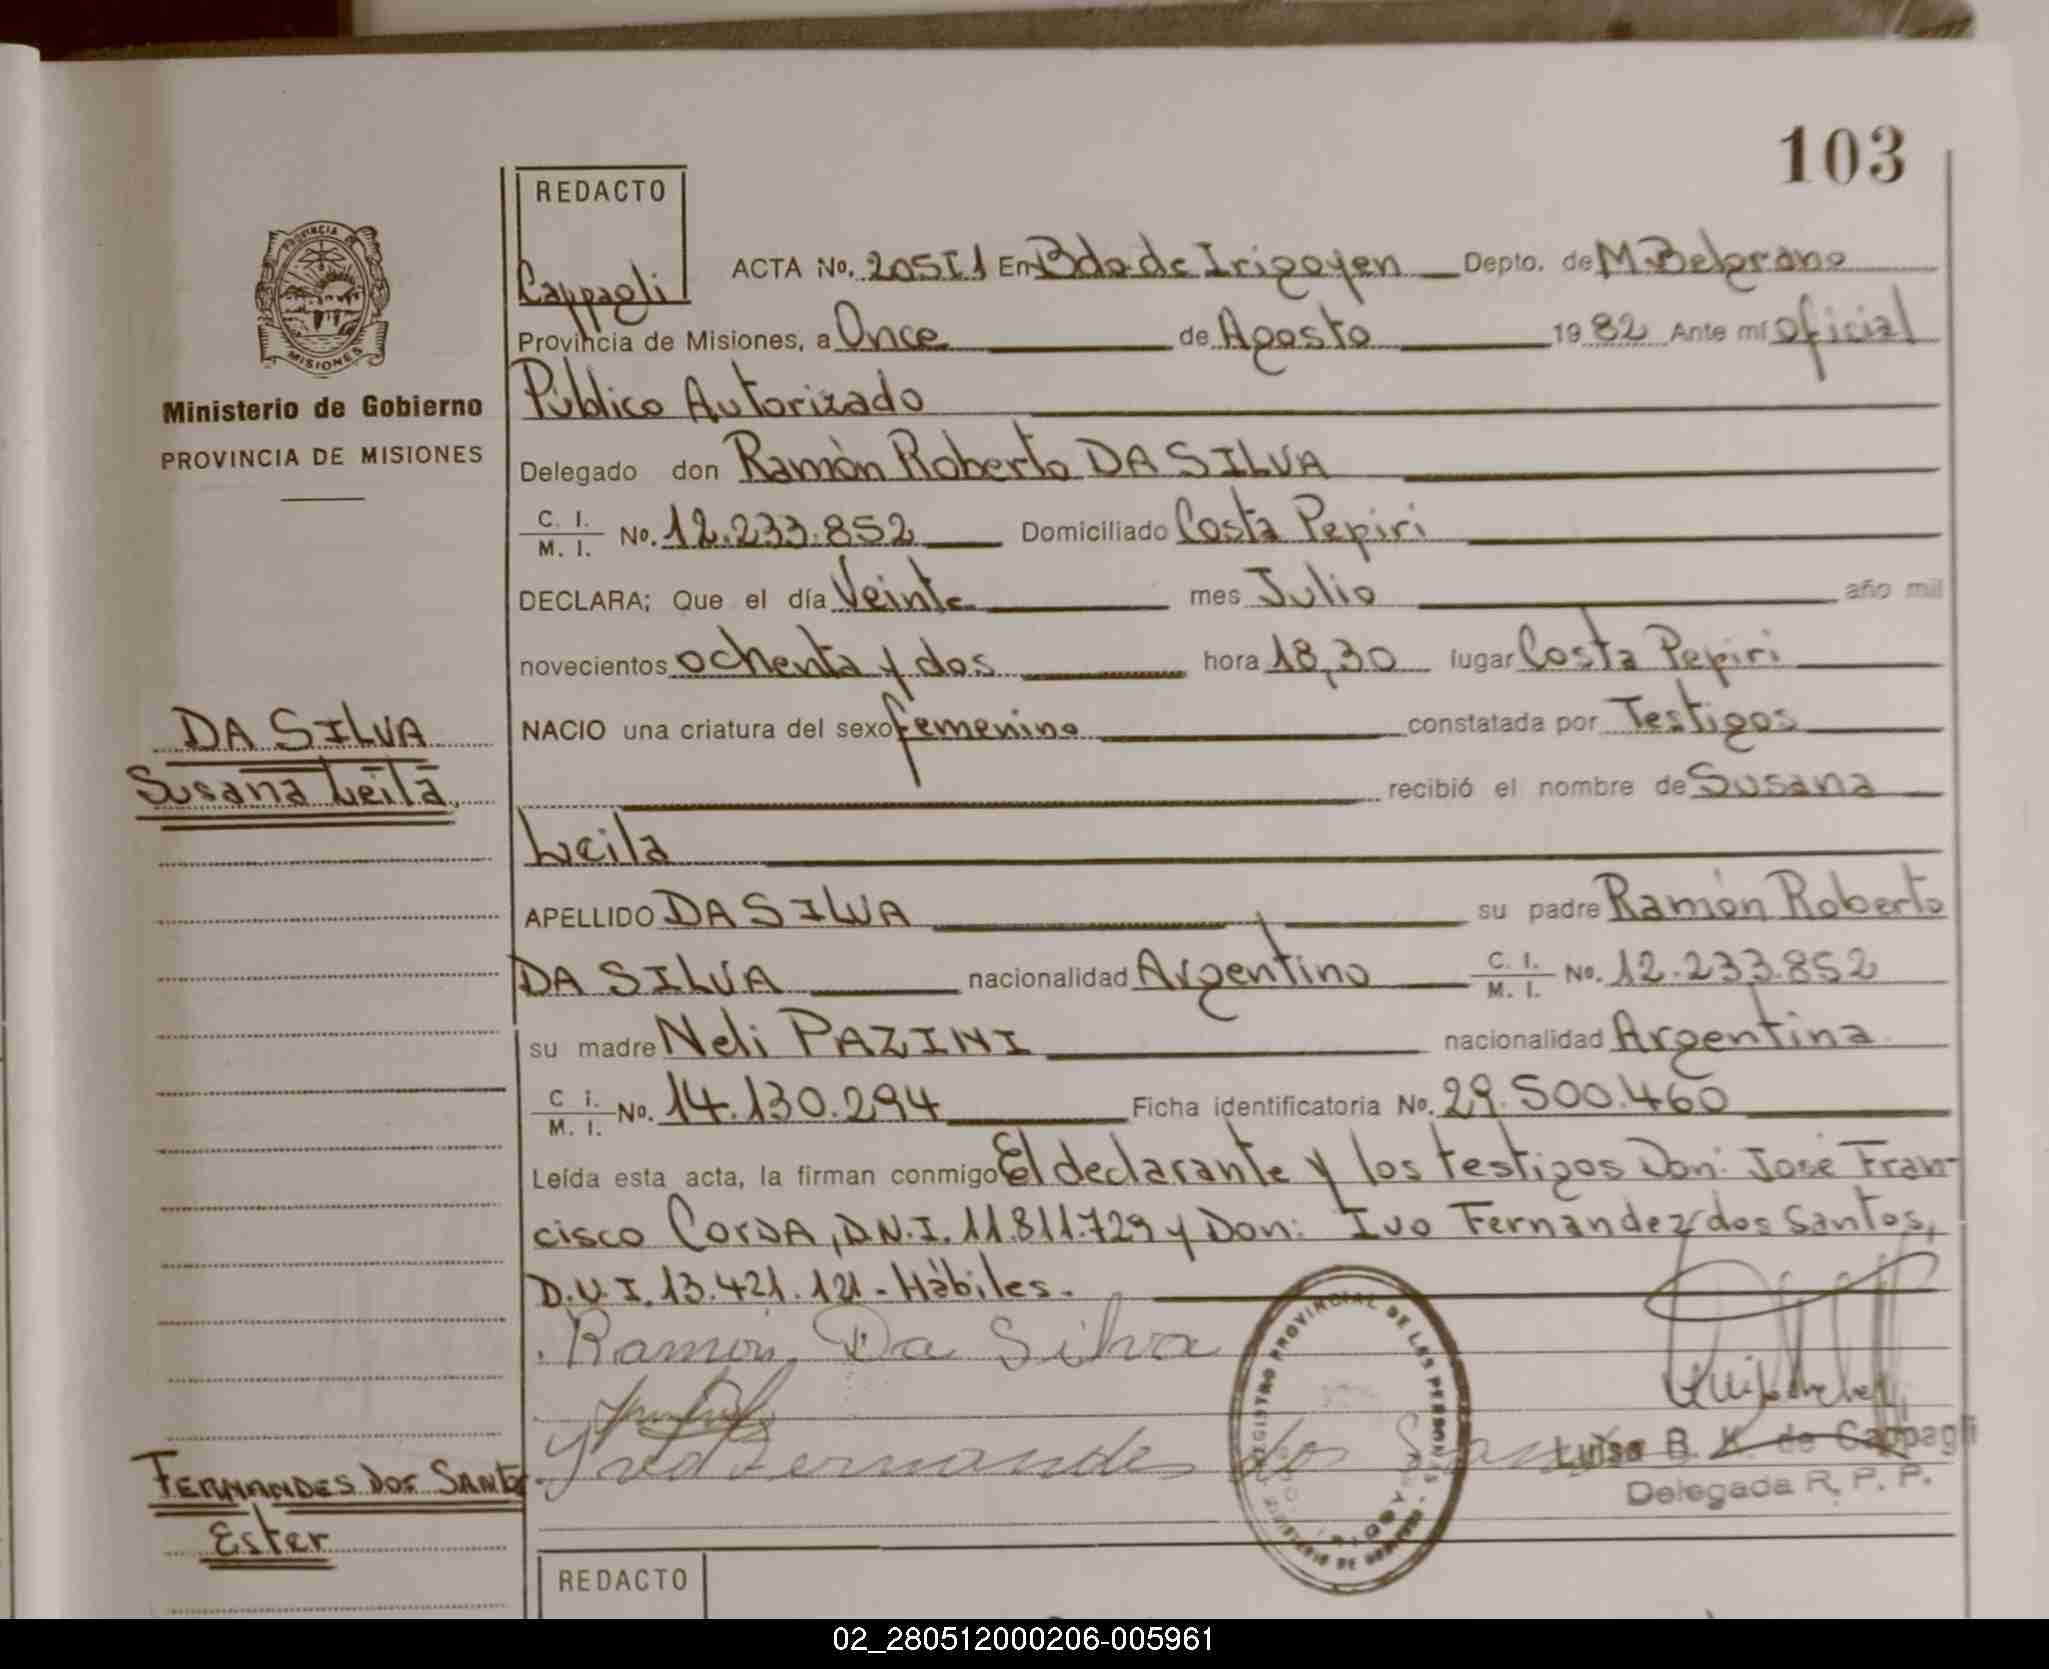 103
REDACTO
Cappagli
ACTA No. 205T1 En Bdo de Irigoyen Depto. de M. Belgrano
Provincia de Misiones, a Once de Agosto 1982 Ante mí oficial
Público Autorizado
PROVINCIA DE
MISIONES
Ministerio de Gobierno
PROVINCIA DE MISIONES
Delegado don Ramòn Roberto DA SILVA
C. I. / M. I. No. 12.233.852 Domiciliado Costa Pepiri
DECLARA; Que el día Veinte mes Julio año mil
novecientos ochenta y dos hora 18,30 lugar Costa Pepiri
DA SILVA
Susana Leila
NACIO una criatura del sexo femenino constatada por Testigos
recibió el nombre de Susana
Leila
APELLIDO DA SILVA su padre Ramón Roberto
DA SILVA nacionalidad Argentino C. I. / M. I. No. 12.233.852
su madre Neli PAZINI nacionalidad Argentina
C i. / M. I. No. 14.130.294 Ficha identificatoria No. 29.500.460
Leída esta acta, la firman conmigo El declarante y los testigos Don: José Fran-
cisco CorDA, D.N.I. 11.811.729 y Don: Ivo Fernandez dos Santos,
D.N.I. 13.421.121 - Hàbiles.
Ramon Da Silva
Ivo Fernandes dos Santos
REGISTRO PROVINCIAL DE LAS PERSONAS
Luisa B. K. de Cappagli
Delegada R. P. P.
FERNANDES DOS SANTOS
Ester
REDACTO
02_280512000206-005961